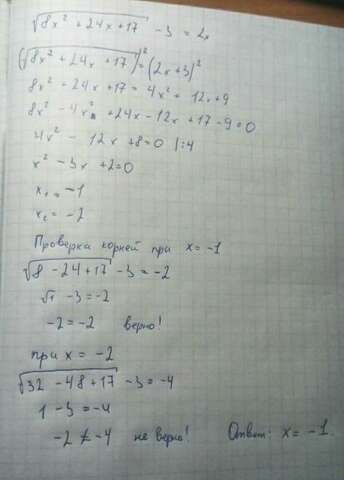 √(8x² + 24x + 17) - 3 = 2x
(√(8x² + 24x + 17))² = (2x+3)²
8x² + 24x + 17 = 4x² + 12x + 9
8x² - 4x² + 24x - 12x + 17 - 9 = 0
4x² - 12x + 8 = 0 | :4
x² - 3x + 2 = 0
x₁ = -1
x₂ = -2
Проверка корней при x = -1
√(8 - 24 + 17) - 3 = -2
√1 - 3 = -2
-2 = -2 верно!
при x = -2
√(32 - 48 + 17) - 3 = -4
1 - 3 = -4
-2 ≠ -4 не верно! Ответ: x = -1.